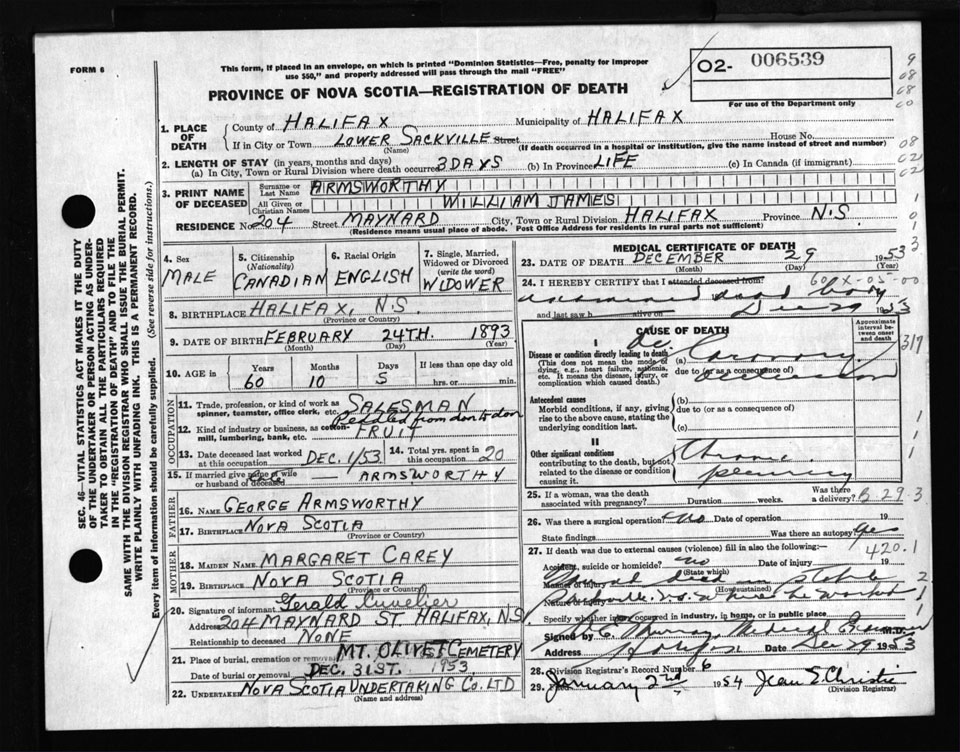 FORM 6
This form, if placed in an envelope, on which is printed "Dominion Statistics—Free, penalty for improper
use $50," and properly addressed will pass through the mail "FREE"
02- 006539
For use of the Department only
PROVINCE OF NOVA SCOTIA—REGISTRATION OF DEATH
1. PLACE OF DEATH
County of HALIFAX Municipality of HALIFAX
If in City or Town LOWER SACKVILLE Street House No.
(Name) (If death occurred in a hospital or institution, give the name instead of street and number)
2. LENGTH OF STAY (in years, months and days)
(a) In City, Town or Rural Division where death occurred 3 DAYS (b) In Province LIFE (c) In Canada (if immigrant)
3. PRINT NAME OF DECEASED
Surname or Last Name ARMSWORTHY
All Given or Christian Names WILLIAM JAMES
RESIDENCE No. 204 Street MAYNARD City, Town or Rural Division HALIFAX Province N.S.
(Residence means usual place of abode. Post Office Address for residents in rural parts not sufficient)
SEC. 46—VITAL STATISTICS ACT MAKES IT THE DUTY
OF THE UNDERTAKER OR PERSON ACTING AS UNDER-
TAKER TO OBTAIN ALL THE PARTICULARS REQUIRED
IN THE "REGISTRATION OF DEATH" AND TO FILE THE
SAME WITH THE DIVISION REGISTRAR WHO SHALL ISSUE THE BURIAL PERMIT.
WRITE PLAINLY WITH UNFADING INK. THIS IS A PERMANENT RECORD.
Every item of information should be carefully supplied. (See reverse side for instructions.)
4. Sex MALE
5. Citizenship (Nationality) CANADIAN
6. Racial Origin ENGLISH
7. Single, Married, Widowed or Divorced (write the word) WIDOWER
8. BIRTHPLACE HALIFAX, N.S.
(Province or Country)
9. DATE OF BIRTH FEBRUARY 24TH. 1893
(Month) (Day) (Year)
10. AGE in Years Months Days If less than one day old
60 10 5 hrs. or min.
OCCUPATION
11. Trade, profession, or kind of work as
spinner, teamster, office clerk, etc. SALESMAN
12. Kind of industry or business, as cotton
mill, lumbering, bank, etc. FRUIT
13. Date deceased last worked at this occupation DEC. 1/53
14. Total yrs. spent in this occupation 20
15. If married give name of wife or husband of deceased ARMSWORTHY
FATHER
16. NAME GEORGE ARMSWORTHY
17. BIRTHPLACE NOVA SCOTIA
(Province or Country)
MOTHER
18. MAIDEN NAME MARGARET CAREY
19. BIRTHPLACE NOVA SCOTIA
(Province or Country)
20. Signature of informant Gerald
Address 204 MAYNARD ST. HALIFAX, N.S.
Relationship to deceased NONE
21. Place of burial, cremation or removal MT. OLIVET CEMETERY
Date of burial or removal DEC. 31ST. 1953
22. UNDERTAKER NOVA SCOTIA UNDERTAKING CO. LTD
(Name and address)
MEDICAL CERTIFICATE OF DEATH
23. DATE OF DEATH DECEMBER 29 1953
(Month) (Day) (Year)
24. I HEREBY CERTIFY that I attended deceased from:
and last saw alive on
CAUSE OF DEATH
Approximate interval between onset and death
I
Disease or condition directly leading to death (a) Coronary
(This does not mean the mode of
dying, e.g., heart failure, asthenia,
etc. It means the disease, injury, or
complication which caused death.)
due to (or as a consequence of)
Antecedent causes
Morbid conditions, if any, giving
rise to the above cause, stating the
underlying condition last.
(b)
due to (or as a consequence of)
(c)
II
Other significant conditions
contributing to the death, but not
related to the disease or condition
causing it.
Chronic
pleurisy
25. If a woman, was the death
associated with pregnancy? Duration weeks. Was there a delivery?
26. Was there a surgical operation? no Date of operation 19
State findings Was there an autopsy? yes
27. If death was due to external causes (violence) fill in also the following:— 420.1
Accident, suicide or homicide? no Date of injury 19
(State which)
Manner of injury
(How sustained)
Nature of injury
Specify whether injury occurred in industry, in home, or in public place
Signed by Murray Medical Examiner M.D.
Address Halifax Date Dec 29 1953
28. Division Registrar's Record Number 6
29. January 2nd 1954 Jean E. Christie
(Division Registrar)